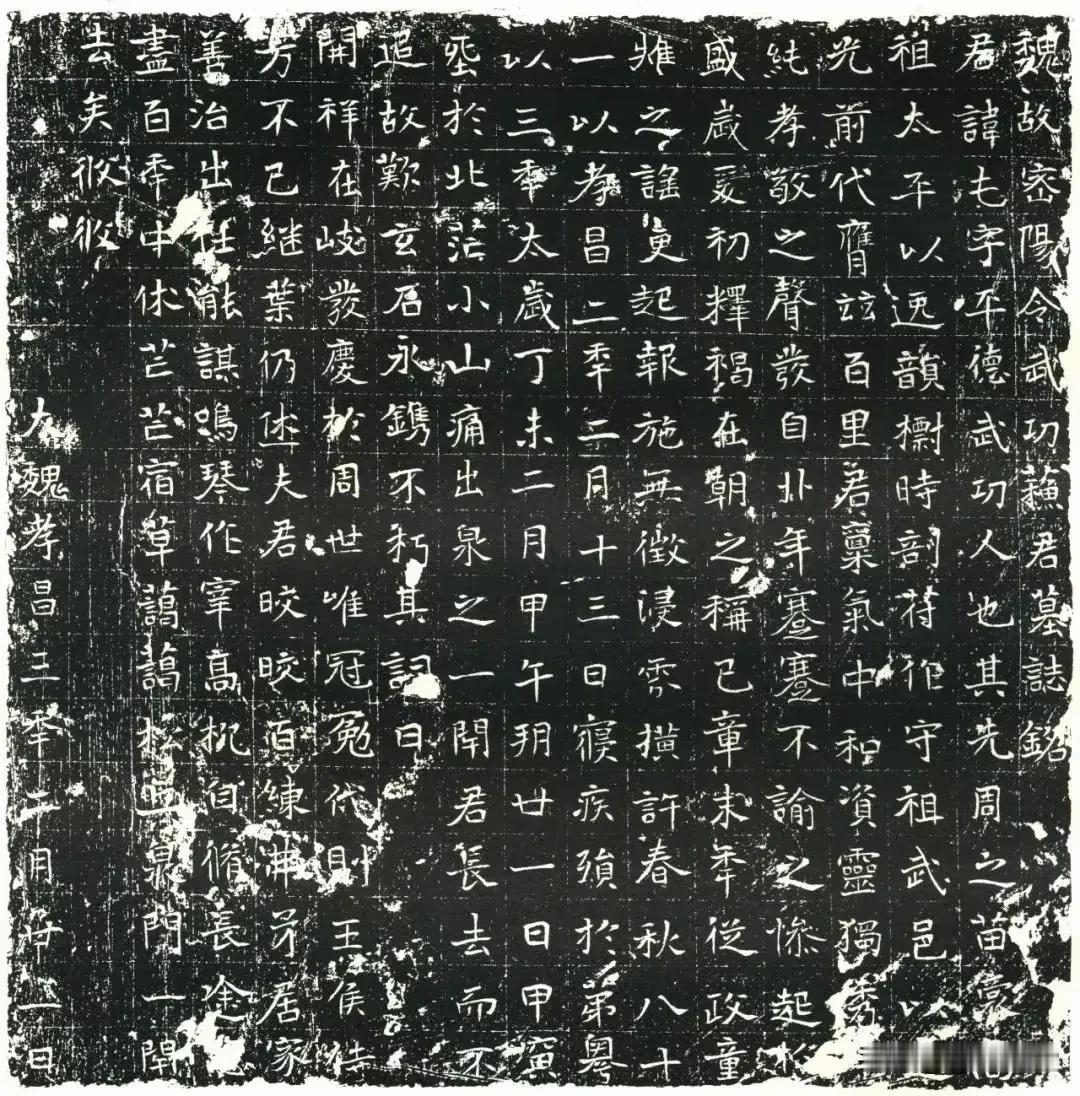 魏故密陽令武功蘇君墓誌銘
君諱屯字平德武功人也其先周之苗裔
祖太平以逸韻檦時剖符作守祖武邑以
光前代膺茲百里君稟氣中和資靈獨秀
純孝敬之聲發自丱年蹇蹇不諭之操起於
盛歲爰初釋褐在朝之稱已章末年從政童
雉之謠更起報施無徵浸雰撗許春秋八十
一以孝昌二年二月十三日寢疾殞於第粵
以三年太歲丁未二月甲午玥廿一日甲寅
垩於北茫小山痛出泉之一閇君長去而不
追故歎玄石永鐫不朽其詞曰
開祥在岐發慶於周世唯冠冕代則王侯
芳不已継葉仍述夫君晈晈百練居家
善治出任能謀鳴琴作宰高枕自脩長途
盡百年中休芒芒宿草藹藹松泉門一閇
去矣攸攸
大魏孝昌三年二月廿一日